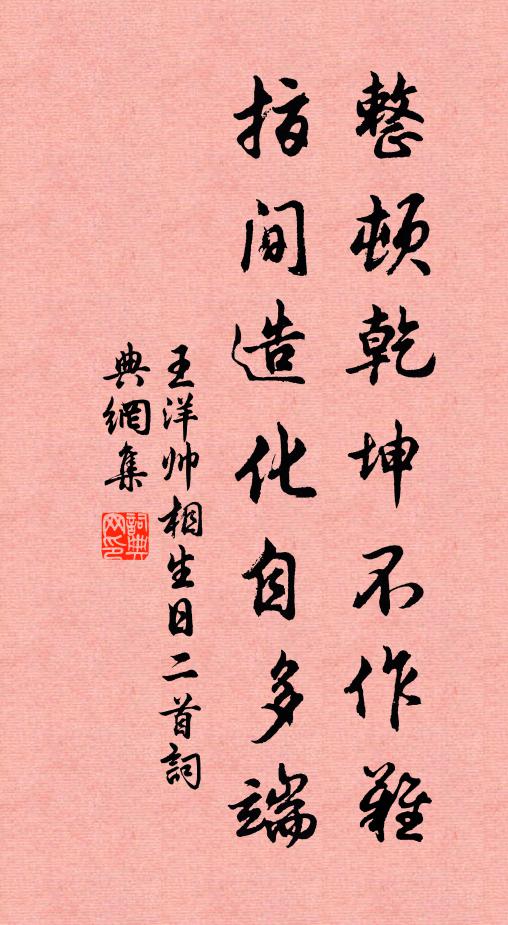 整頓乾坤不作難
指間造化自多端
王洋帅相生日二首詞
典網集
詞典网印